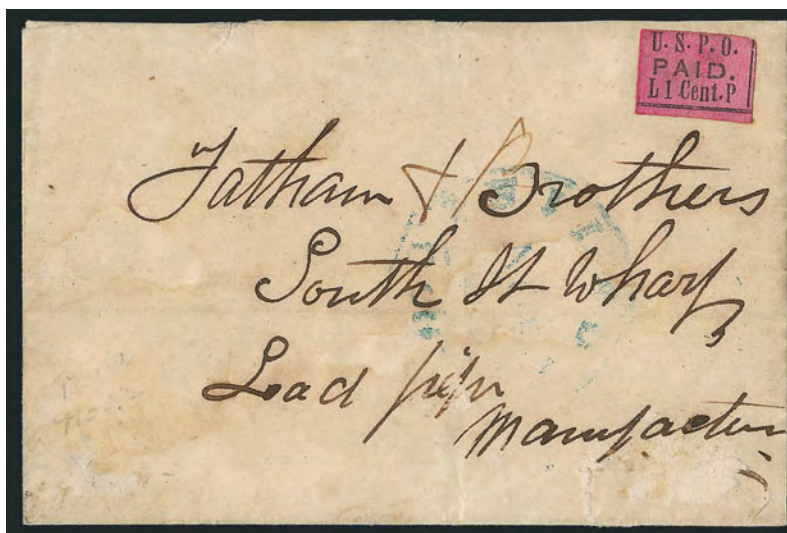 U. S. P. O.
PAID.
L 1 Cent. P
Tatham & Brothers
South St Wharf
Lead pipe
Manufactur